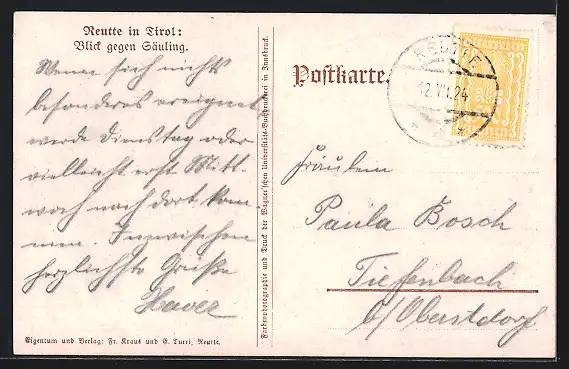 Reutte in Tirol:
Blick gegen Säuling.
Wenn sich nichts
besonderes ereignet
werde Dienstag oder
vielleicht erst Mitt-
woch nach dort kom-
men. Inzwischen
herzlichste Grüße
Xaver
Eigentum und Verlag: Fr. Kraus und E. Turri, Reutte.
Farbenphotographie und Druck der Wagner'schen Universitäts-Buchdruckerei in Innsbruck.
Postkarte.
REUTTE
12.VII.24
Fräulein
Paula Bosch
Tiefenbach
b/Oberstdorf